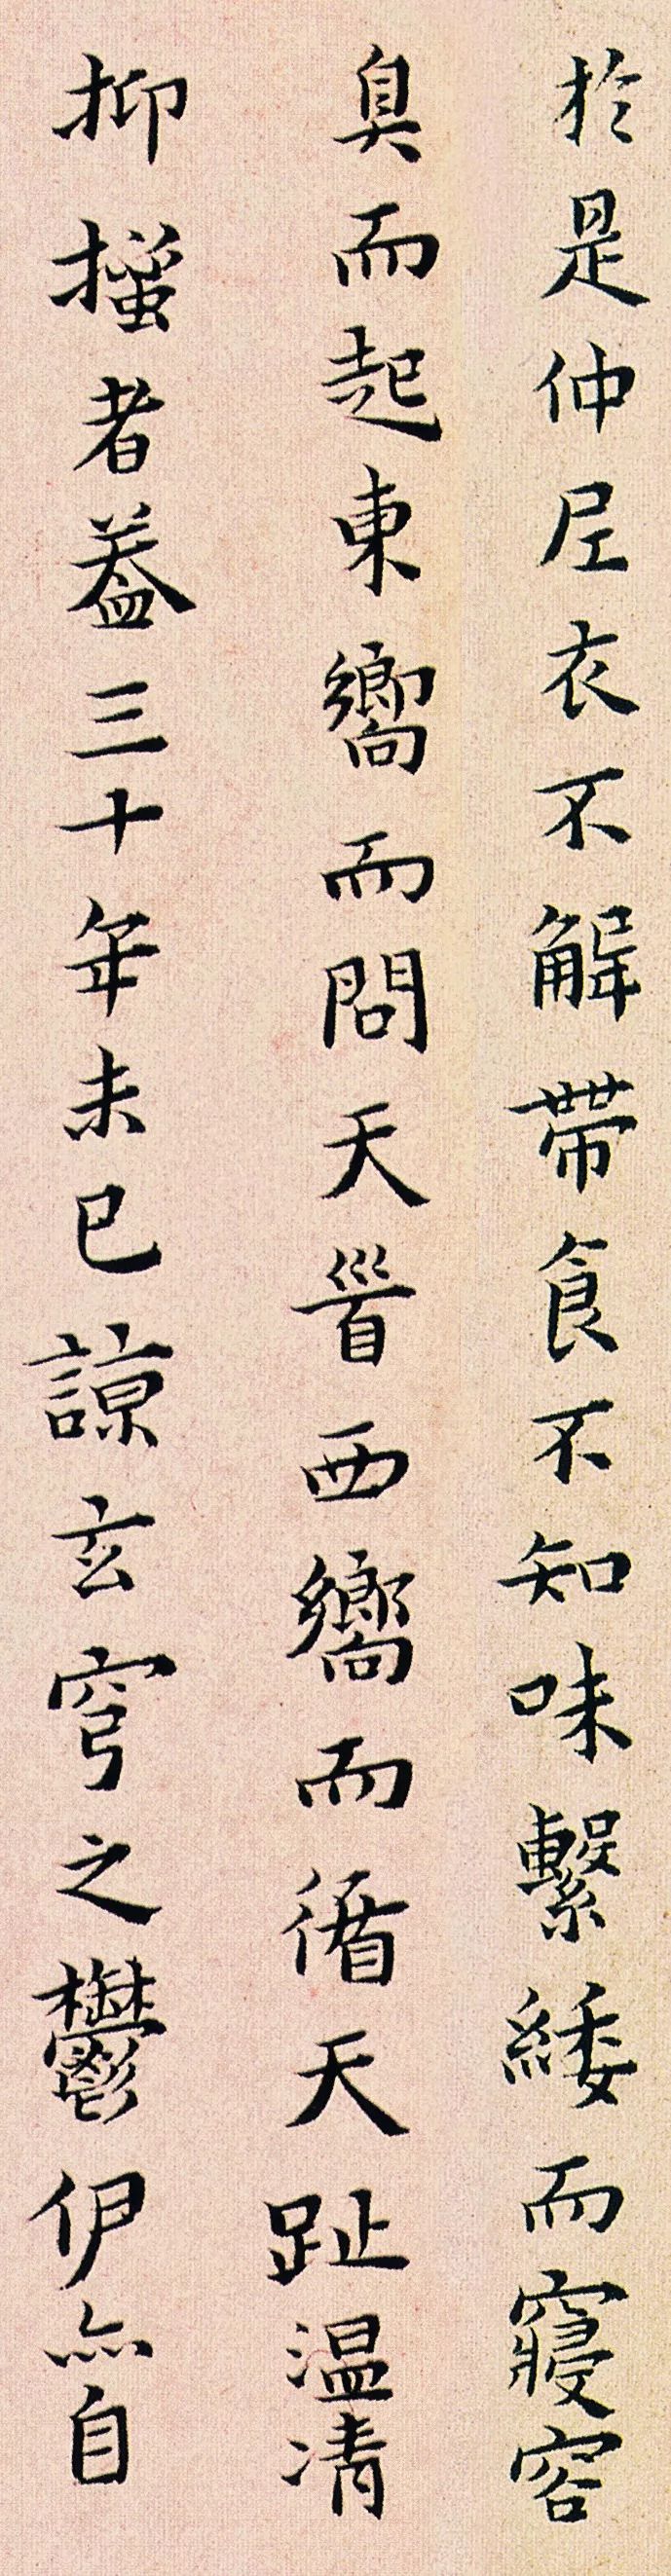 於是仲尼衣不解帶食不知味繫緌而寢容
臭而起東嚮而問天首西嚮而循天趾温凊
抑搔者葢三十年未已諒玄穹之鬱伊亦自